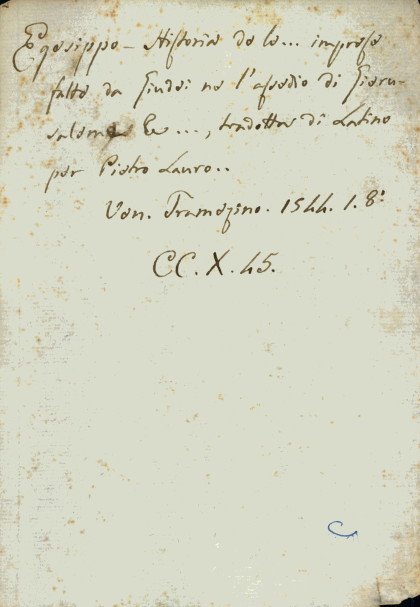 Egesippo - Historia de le... imprese
fatte da Giudei ne l'assedio di Gieru-
salemme &c ..., tradotta di Latino
per Pietro Lauro..
Ven. Tramezino. 1544. 1. 8:
CC. X. 45.